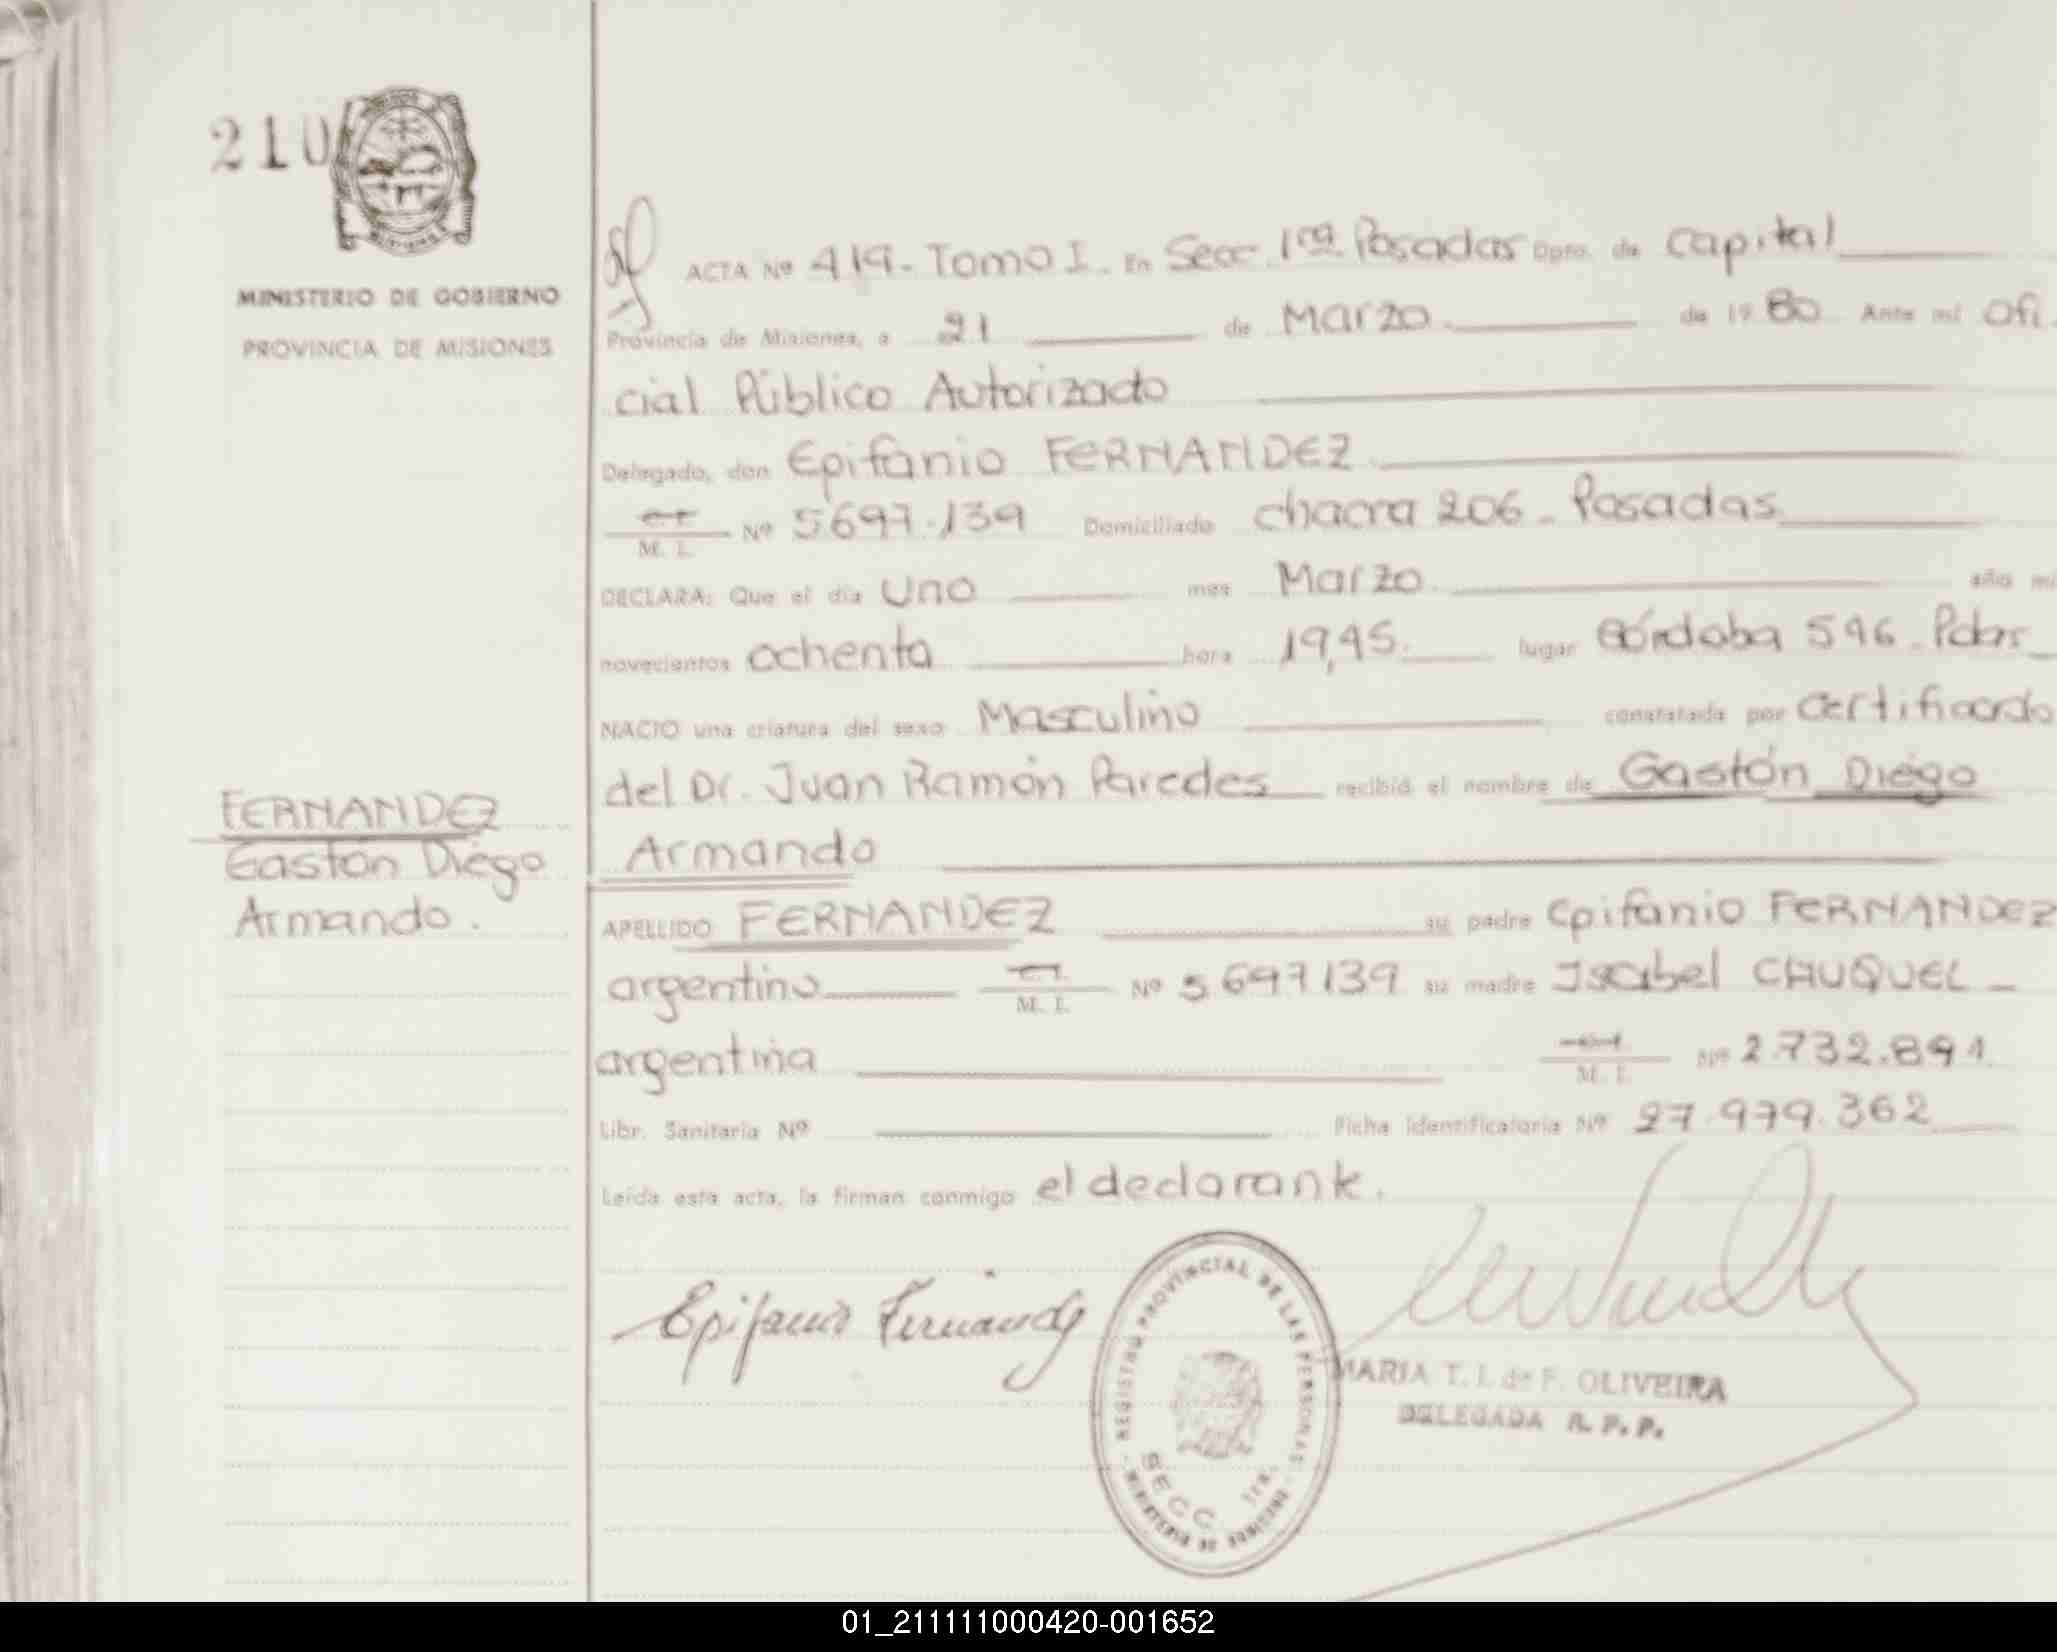 210
MINISTERIO DE GOBIERNO
PROVINCIA DE MISIONES
ACTA Nº 419 - Tomo I. En Secc. 1ra. Posadas Dpto. de Capital
Provincia de Misiones, a 21 de Marzo de 1980 Ante mí Ofi
cial Público Autorizado
Delegado, don Epifanio FERNANDEZ
M. I. Nº 5697.139 Domiciliado Chacra 206 - Posadas
DECLARA: Que el día Uno mes Marzo año mil
novecientos ochenta hora 19,45. lugar Córdoba 546 - Pdas
NACIO una criatura del sexo Masculino constatada por Certificado
del Dr. Juan Ramón Paredes recibió el nombre de Gastón Diégo
Armando
FERNANDEZ
Gastón Diégo
Armando.
APELLIDO FERNANDEZ su padre Epifanio FERNANDEZ
argentino M. I. Nº 5.697.139 su madre Isabel CHUQUEL -
argentina M. I. Nº 2.732.891
Libr. Sanitaria Nº Ficha identificatoria Nº 27.979.362
Leída esta acta, la firman conmigo el declarante.
Epifanio Fernández
REGISTRO PROVINCIAL DE LAS PERSONAS
SECC. 1RA.
MINISTERIO DE GOBIERNO
MARIA T. I. de F. OLIVEIRA
DELEGADA R. P. P.
01_211111000420-001652